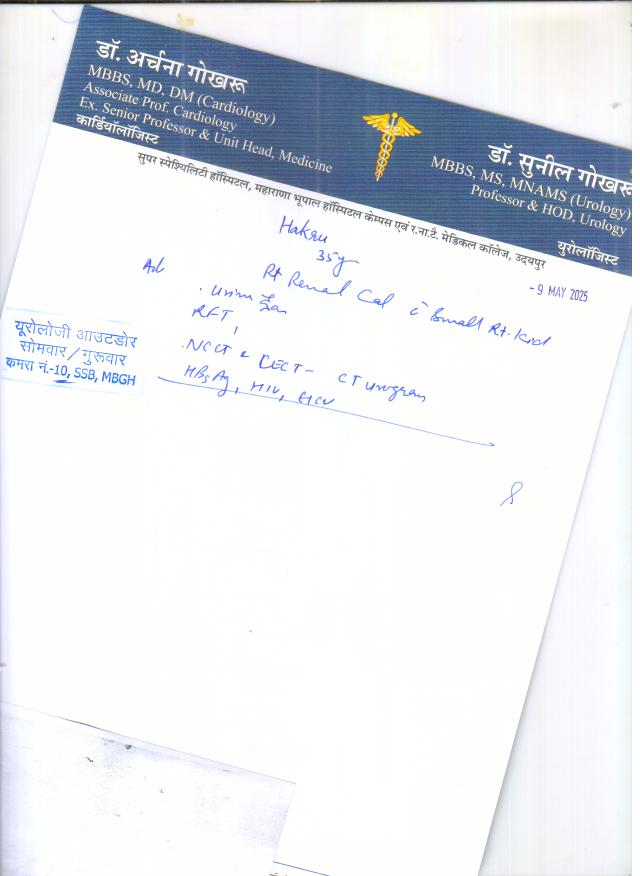 डॉ. अर्चना गोखरू
MBBS, MD, DM (Cardiology)
Associate Prof. Cardiology
Ex. Senior Professor & Unit Head, Medicine
कार्डियॉलॉजिस्ट
डॉ. सुनील गोखरू
MBBS, MS, MNAMS (Urology)
Professor & HOD, Urology
युरोलॉजिस्ट
सुपर स्पेश्यिलिटी हॉस्पिटल, महाराणा भूपाल हॉस्पिटल केम्पस एवं र.ना.टै. मेडिकल कॉलेज, उदयपुर
- 9 MAY 2025
35y
Rt Renal Cal c̄ Small Rt. Kid
Ad
RFT
NCCT & CECT - CT urogram
HBsAg, HIV, HCV
यूरोलोजी आउटडोर
सोमवार / गुरूवार
कमरा नं.-10, SSB, MBGH